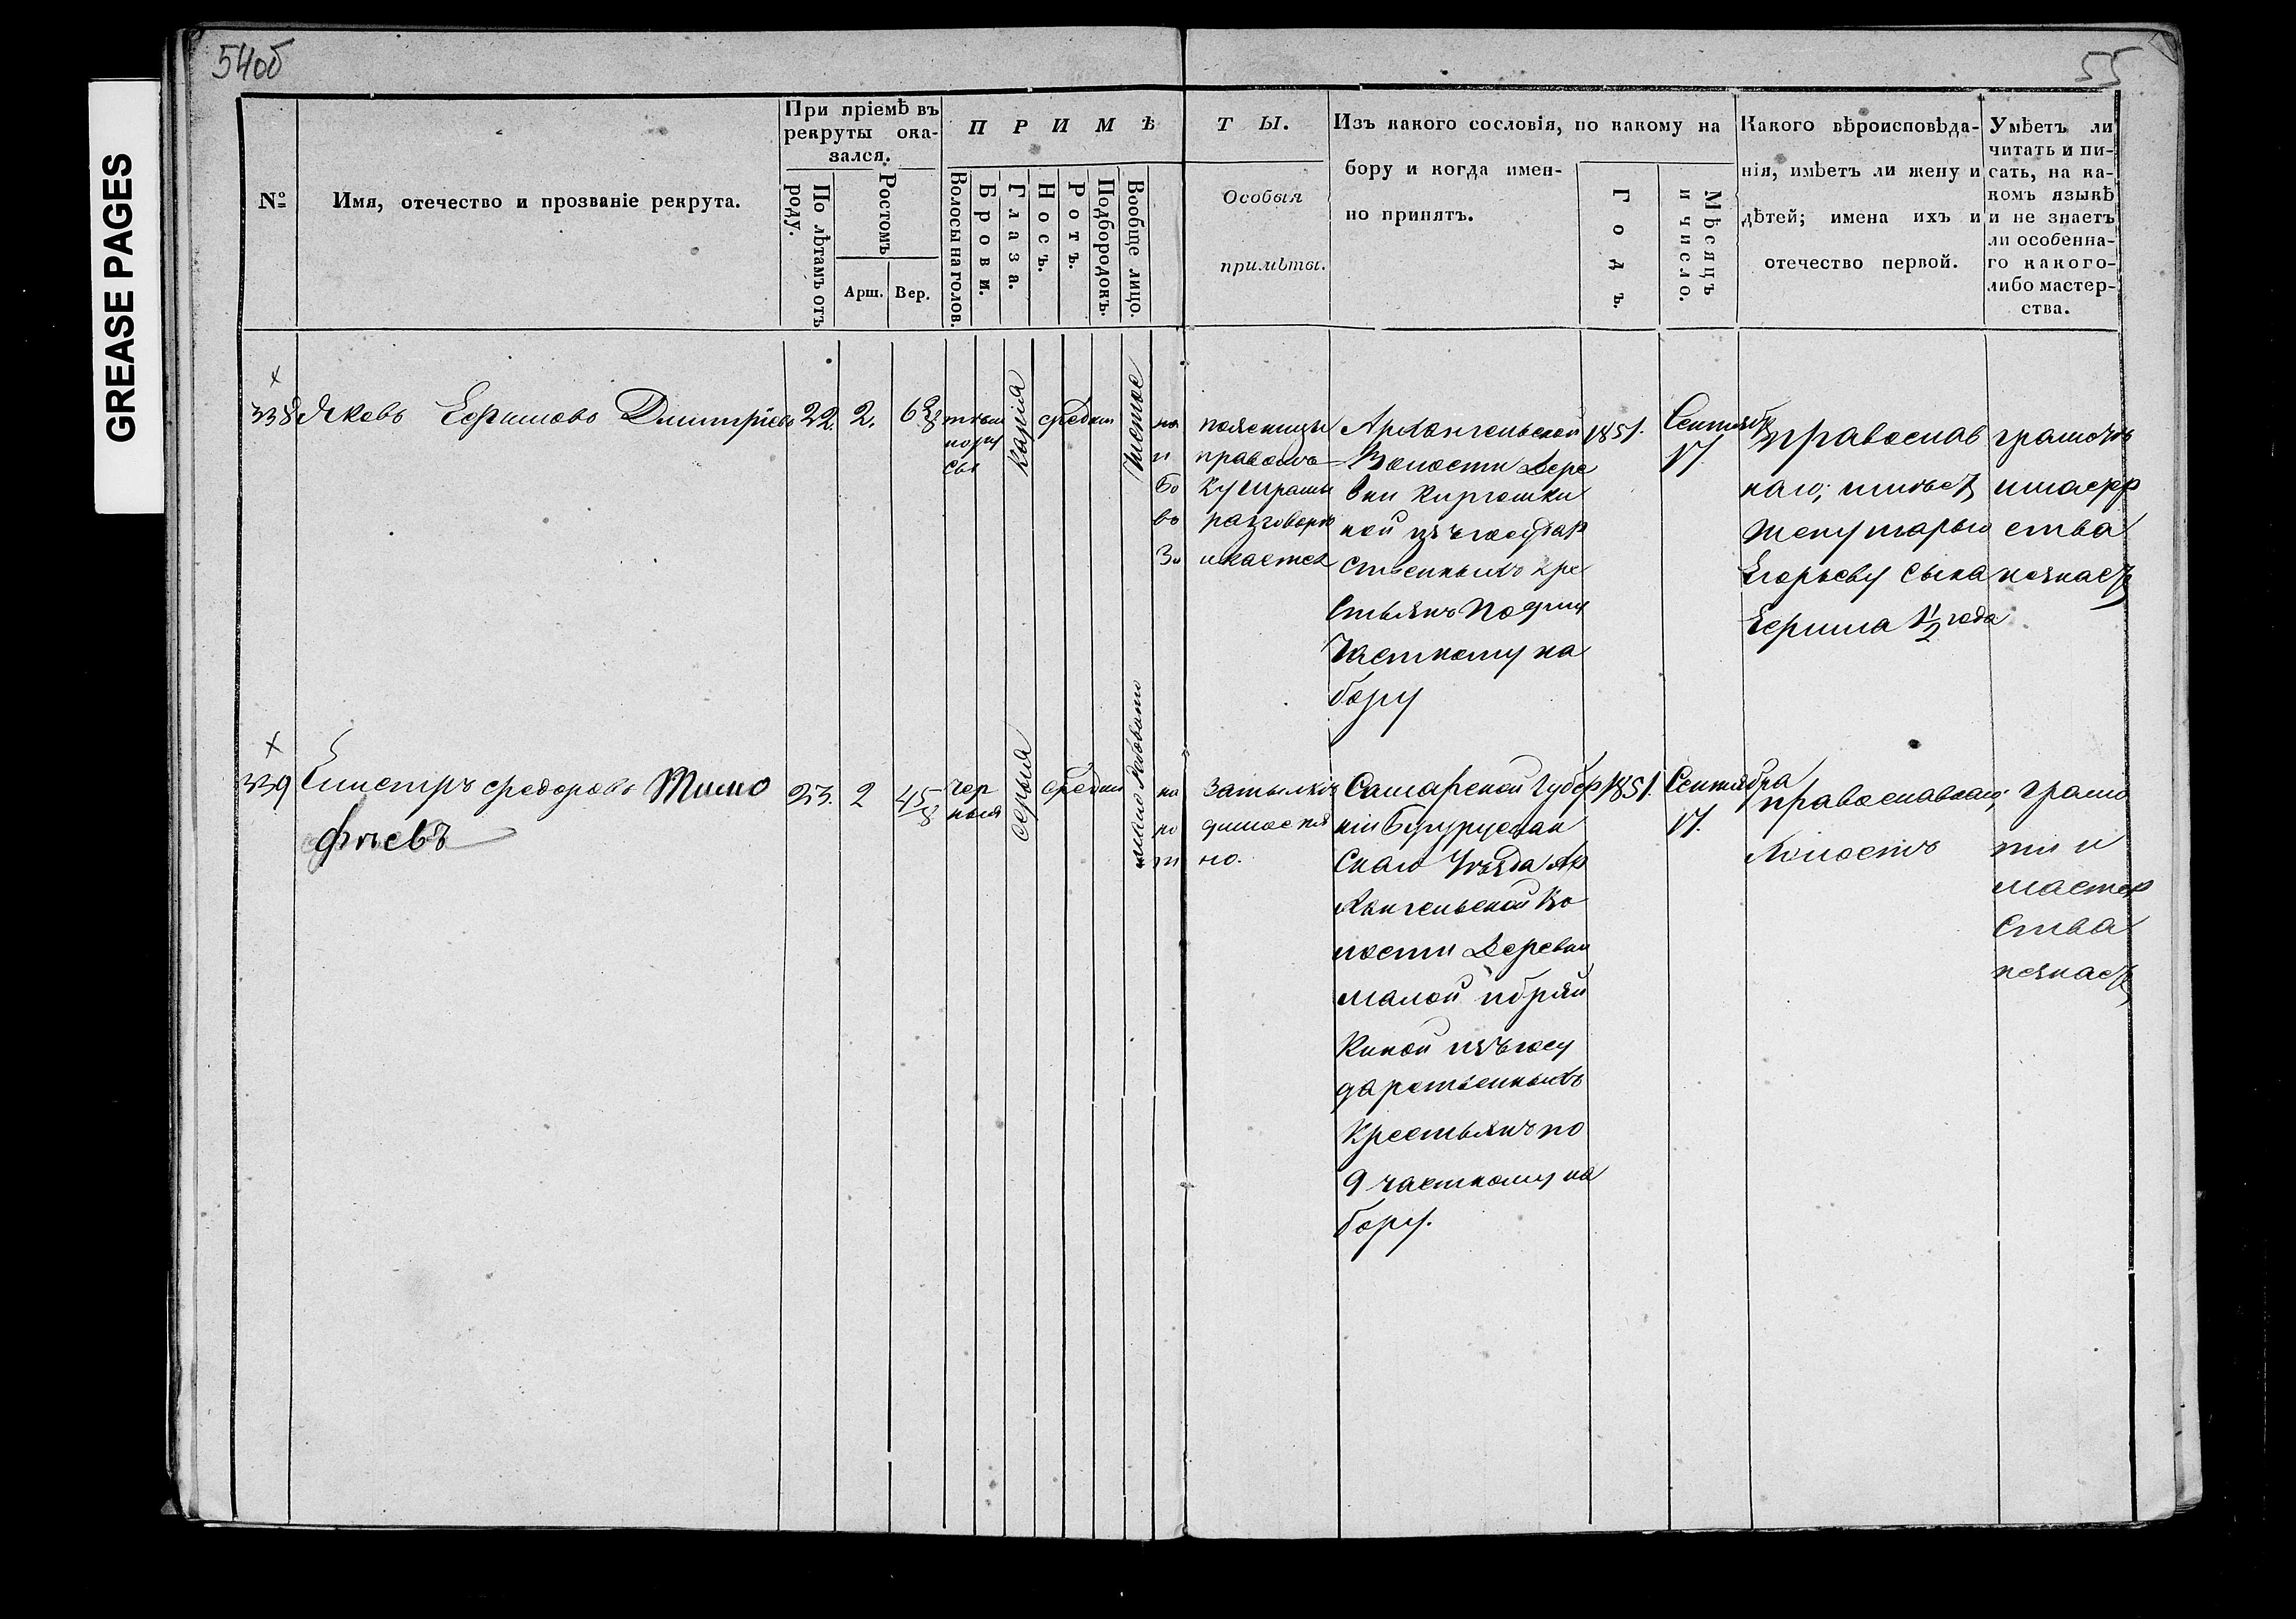 GREASE PAGES
54об
55
№
Имя, отечество и прозваніе рекрута.
При пріемѣ въ
рекруты ока-
зался.
По лѣтамъ отъ
роду.
Ростомъ
Арш.
Вер.
ПРИМѢ
Волосы на голов.
Брови.
Глаза.
Носъ.
Ротъ.
Подбородокъ.
Вообще лицо.
ТЫ.
Особыя
примѣты.
Изъ какого сословія, по какому на
бору и когда имен-
но принятъ.
Годъ.
Мѣсяцъ
и число.
Какого вѣроисповѣда-
нія, имѣетъ ли жену и
дѣтей; имена ихъ и
отечество первой.
Умѣетъ ли
читать и пи-
сать, на ка-
комъ языкѣ
и не знаетъ
ли особенна-
го какого-
либо мастер-
ства.
338
Яковъ Ефимовъ Дмитріевъ
22.
2.
6
темно
ру
сыя
карія
средни
чистое
на поясницы
и правомъ
бо
во разговорѣ
за икается
Архангельской
Волости Дере
вни
ной изъ государ
ственныхъ кре
стьянъ по
частному на
бору
1851.
Сентябр
17.
православ
наго; имѣетъ
жену Марью
Егорьеву сына
Ефима 1 1/2 года
грамотѣ
и мастер
ства
незнаетъ
339
Симстръ Федоровъ Тимо
фѣевъ
23.
2
4 5/8
чер
ныя
серыя
средни
мало рябовато
на затылкѣ
одно
но.
Самарской Губер
ніи Бугуруслан
скаго Уѣзда Ар
хангельской Во
лости Деревни
малой Ибряй
киной изъ госу
дарственныхъ
Крестьянъ по
9 частному на
бору.
1851.
Сентября
17.
православнаго;
холостъ
грамо
ти и
мастер
ства
незнаетъ